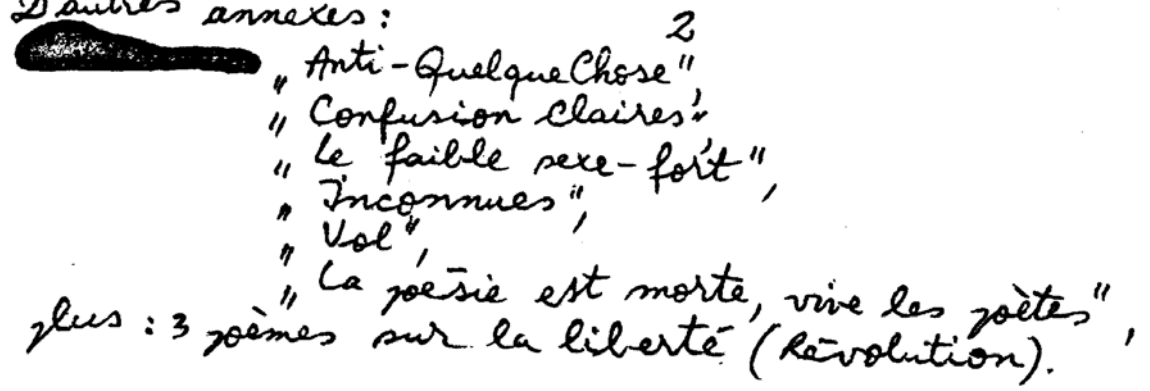 D'autres annexes :
2
„ Anti-QuelqueChose",
„ Confusion Claires",
„ Le faible sexe-fort",
„ Inconnues",
„ Vol",
„ La poésie est morte, vive les poètes",
plus : 3 poèmes sur la liberté (Révolution).